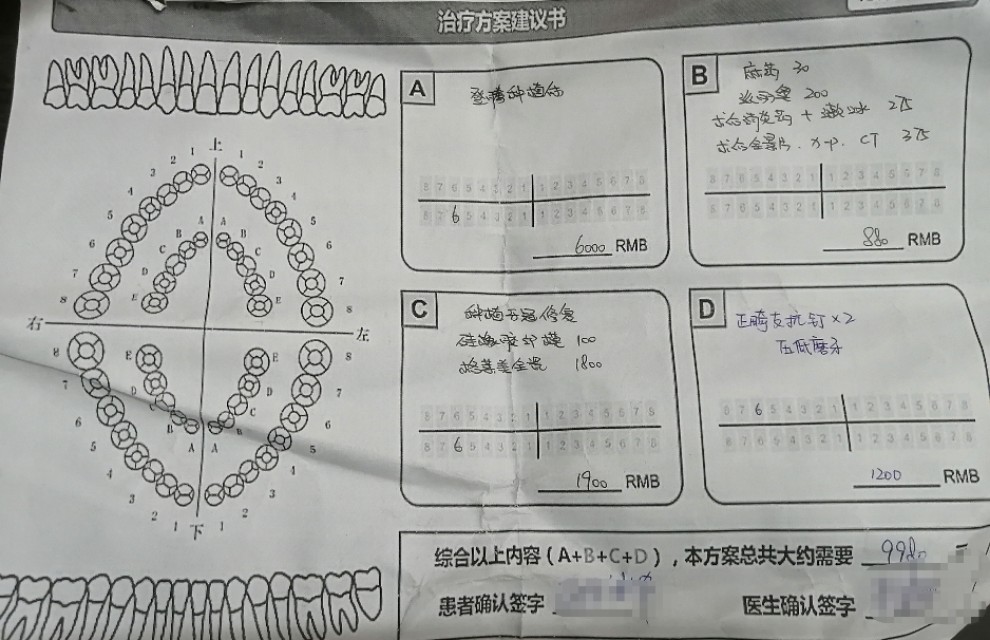 治疗方案建议书
上
右
左
下
2 1 1 2
3 3
4 4
5 5
6 6
7 7
8 8
A A
B B
C C
D D
E E
8 8
7 7
6 6
5 5
4 4
3 3
2 1 1 2
E E
D D
C C
B B
A A
A
登腾种植体
8 7 6 5 4 3 2 1 1 2 3 4 5 6 7 8
8 7 6 5 4 3 2 1 1 2 3 4 5 6 7 8
6000 RMB
B
麻药 30
200
+ 漱口水 275
全景片. X-p. CT 375
8 7 6 5 4 3 2 1 1 2 3 4 5 6 7 8
8 7 6 5 4 3 2 1 1 2 3 4 5 6 7 8
880 RMB
C
种植牙冠修复
硅橡胶印模 100
1800
8 7 6 5 4 3 2 1 1 2 3 4 5 6 7 8
8 7 6 5 4 3 2 1 1 2 3 4 5 6 7 8
1900 RMB
D
正畸支抗钉×2
压低磨牙
8 7 6 5 4 3 2 1 1 2 3 4 5 6 7 8
8 7 6 5 4 3 2 1 1 2 3 4 5 6 7 8
1200 RMB
综合以上内容(A+B+C+D),本方案总共大约需要 9980
患者确认签字
医生确认签字